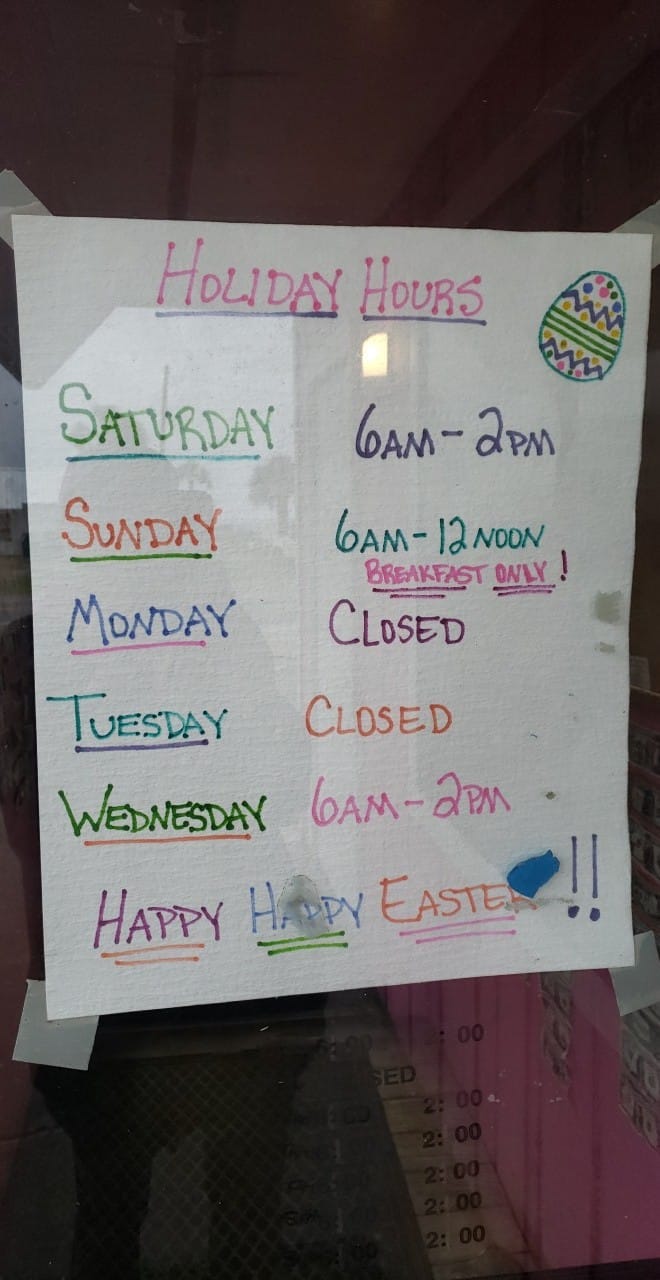 HOLIDAY HOURS
SATURDAY 6AM - 2PM
SUNDAY 6AM - 12 NOON
BREAKFAST ONLY!
MONDAY CLOSED
TUESDAY CLOSED
WEDNESDAY 6AM - 2PM
HAPPY HAPPY EASTER!!
: 00
SED
2: 00
2: 00
2: 00
2: 00
2: 00